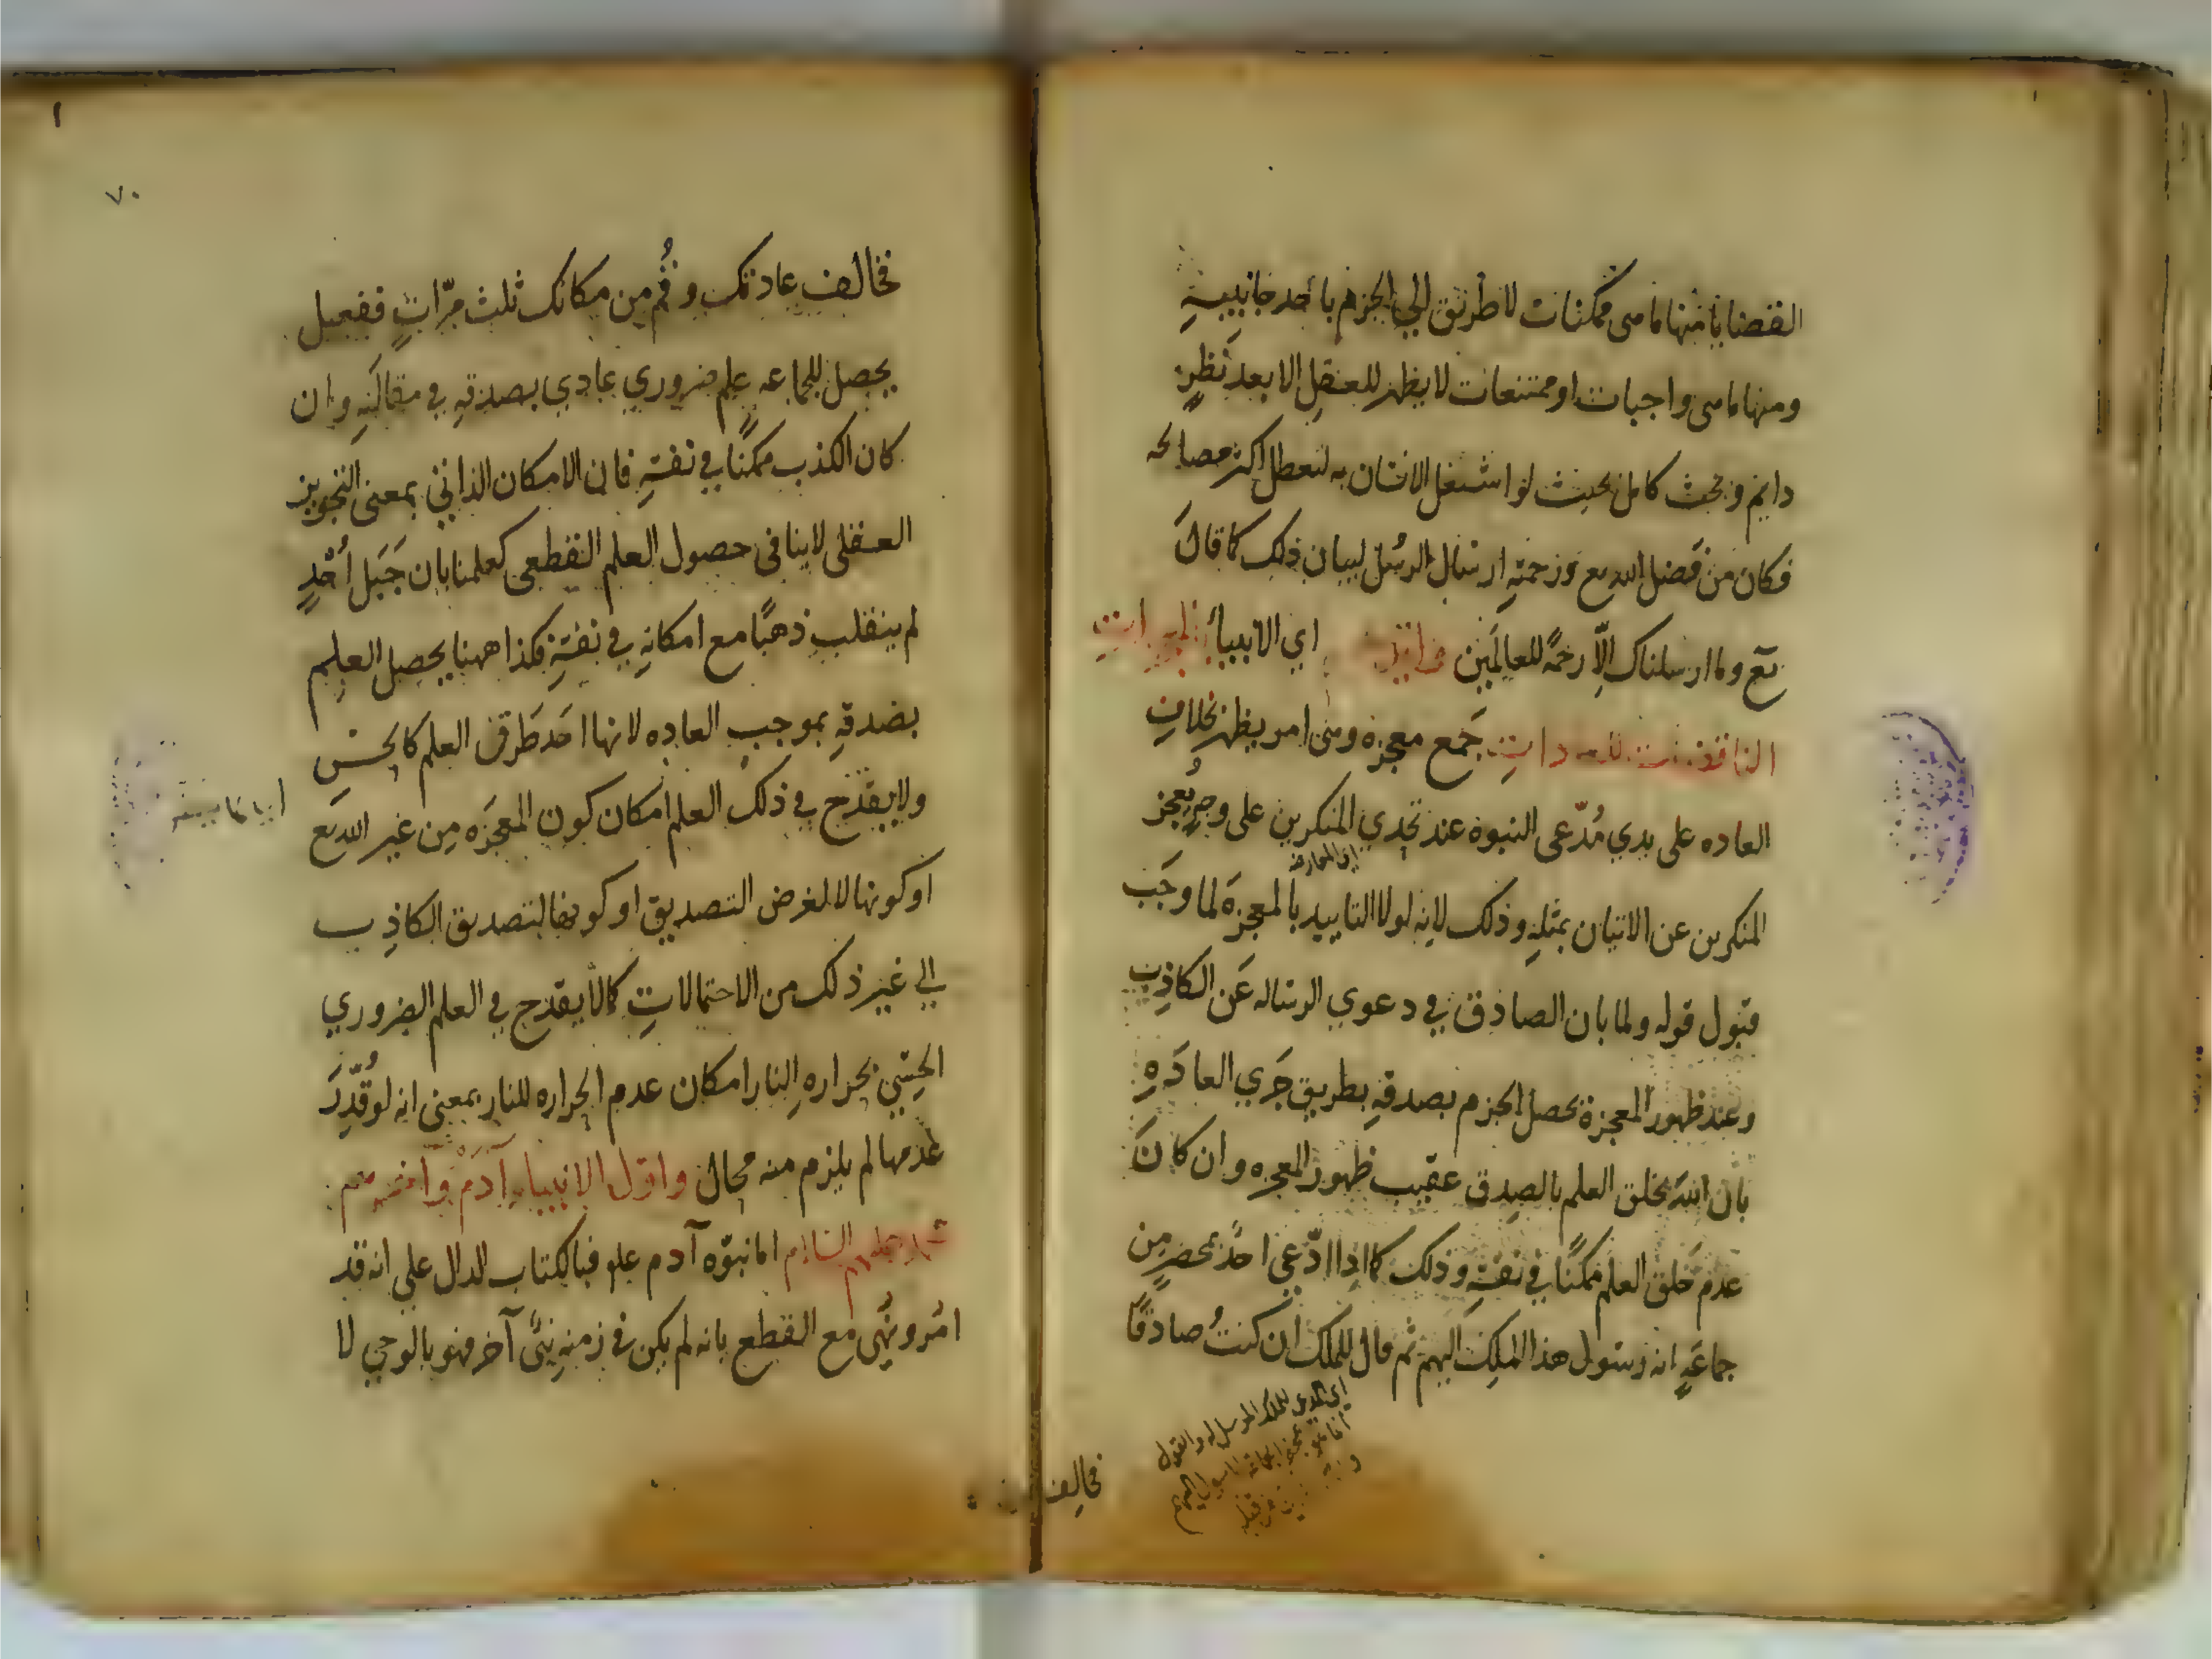 القضايا منها ما هى ممكنات لا طريق الي الجزم باحد جانبيه
ومنها ما هى واجبات او ممتنعات لا يظهر للعقل الا بعد نظرٍ
دايم وبحث كامل بحيث لو اشتغل الانسان به لتعطل اكثر مصالحه
فكان من فضل الله تع ورحمته ارسال الرسُل لبيان ذلك كما قال
تع وما ارسلناك الّا رحمةً للعالمين وايدهم اي الانبيا بالمعجزات
الناقضات للعادات جمع معجزه وهى امر يظهر بخلاف
العاده على يدي مُدّعى النبوه عند تحدي المنكرين على وجهٍ يُعجز
المنكرين عن الاتيان بمثله وذلك لانه لولا التاييد بالمعجزة لما وجَب
قبول قوله ولما بان الصادق في دعوي الرساله عَن الكاذب
وعند ظهور المعجزة يحصل الجزم بصدقه بطريق جَري العادَهِ
بان الله يخلق العلم بالصدق عقيب ظهور المعجزه وان كانَ
عدم خَلق العلم ممكنًا في نفسه وذلك كما اذا ادّعي احدٌ بمحضرٍ مِن
جماعَهٍ انه رسول هذا الملِك اليهم ثم قال للملك ان كنتُ صادقًا
فخالف
٧٠
فخالف عادتك وقُم من مكانك ثلث مرّاتٍ ففعل
يحصل للجماعه علم ضروري عادي بصدقه في مقالته وان
كان الكذب ممكنًا في نفسهِ فان الامكان الذاتي بمعنى التجويز
العقلى لا ينافى حصول العلم القطعى كعلمنا بان جَبَل اُحُدٍ
لم ينقلب ذهبًا مع امكانهِ في نفسهِ فكذا ههنا يحصل العلم
بصدقهِ بموجب العاده لانها احَد طرق العلم كالحسّ
ولا يقدح في ذلك العلم امكان كون المعجزَه مِن غير الله تع
او كونها لا لغرض التصديق او كونها لتصديق الكاذِب
الي غير ذلك من الاحتمالاتِ كما لا يقدح في العلم الضروري
الحِسّي بحرارهِ النار امكان عدم الحراره للنار بمعنى انه لو قُدِّرَ
عَدمها لم يلزم منه محال واوّل الانبياء آدَم وآخرهم
محمد عليهم السلام اما نبوّه آدم علم فبالكتاب الدال علي انه قد
امُر ونُهى مع القطع بانه لم يكن في زمنه نبىٌّ آخر فهو بالوحي لا